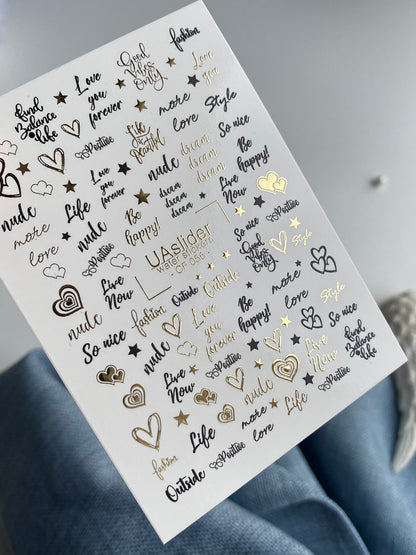 fashion
Good
Vibes
Only
Love
You
Love
you
forever
find
Balance
*life
more
love
Style
Life
is
Beautiful
Positive
So nice
Be
happy!
dream
dream
dream
nude
Love
you
forever
dream
dream
dream
Live
Now
nude
Life
Be
happy!
more
love
nude
UAslider
water stickers
CF-56
So nice
Good
Vibes
Only
Positive
Live
Now
Outside
Outside
more
love
Style
nude
fashion
Love
you
forever
Be
happy!
So nice
nude
Style
find
Balance
*life
Positive
Live
Now
Live
Now
nude
Positive
Life
more
love
Life
Positive
fashion
Outside